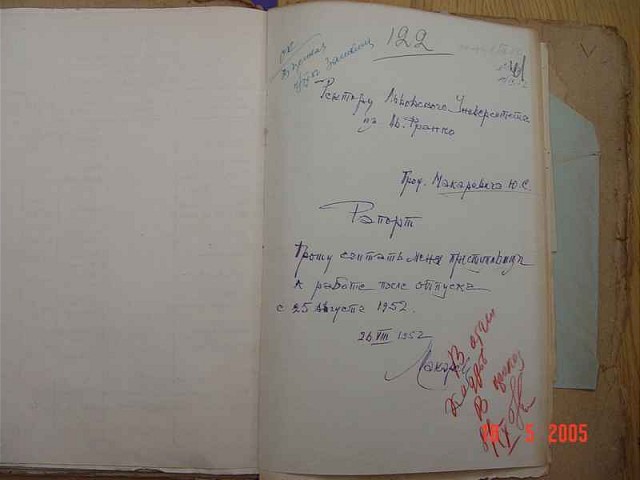 122
ОК
В приказ
Ректору Львовского Университета
им. Ив. Франко
Проф. Макаревича Ю.С.
Рапорт
Прошу считать меня приступившим
к работе после отпуска
с 25 августа 1952.
26 VIII 1952
Макарев
В
В приказ
26 5 2005